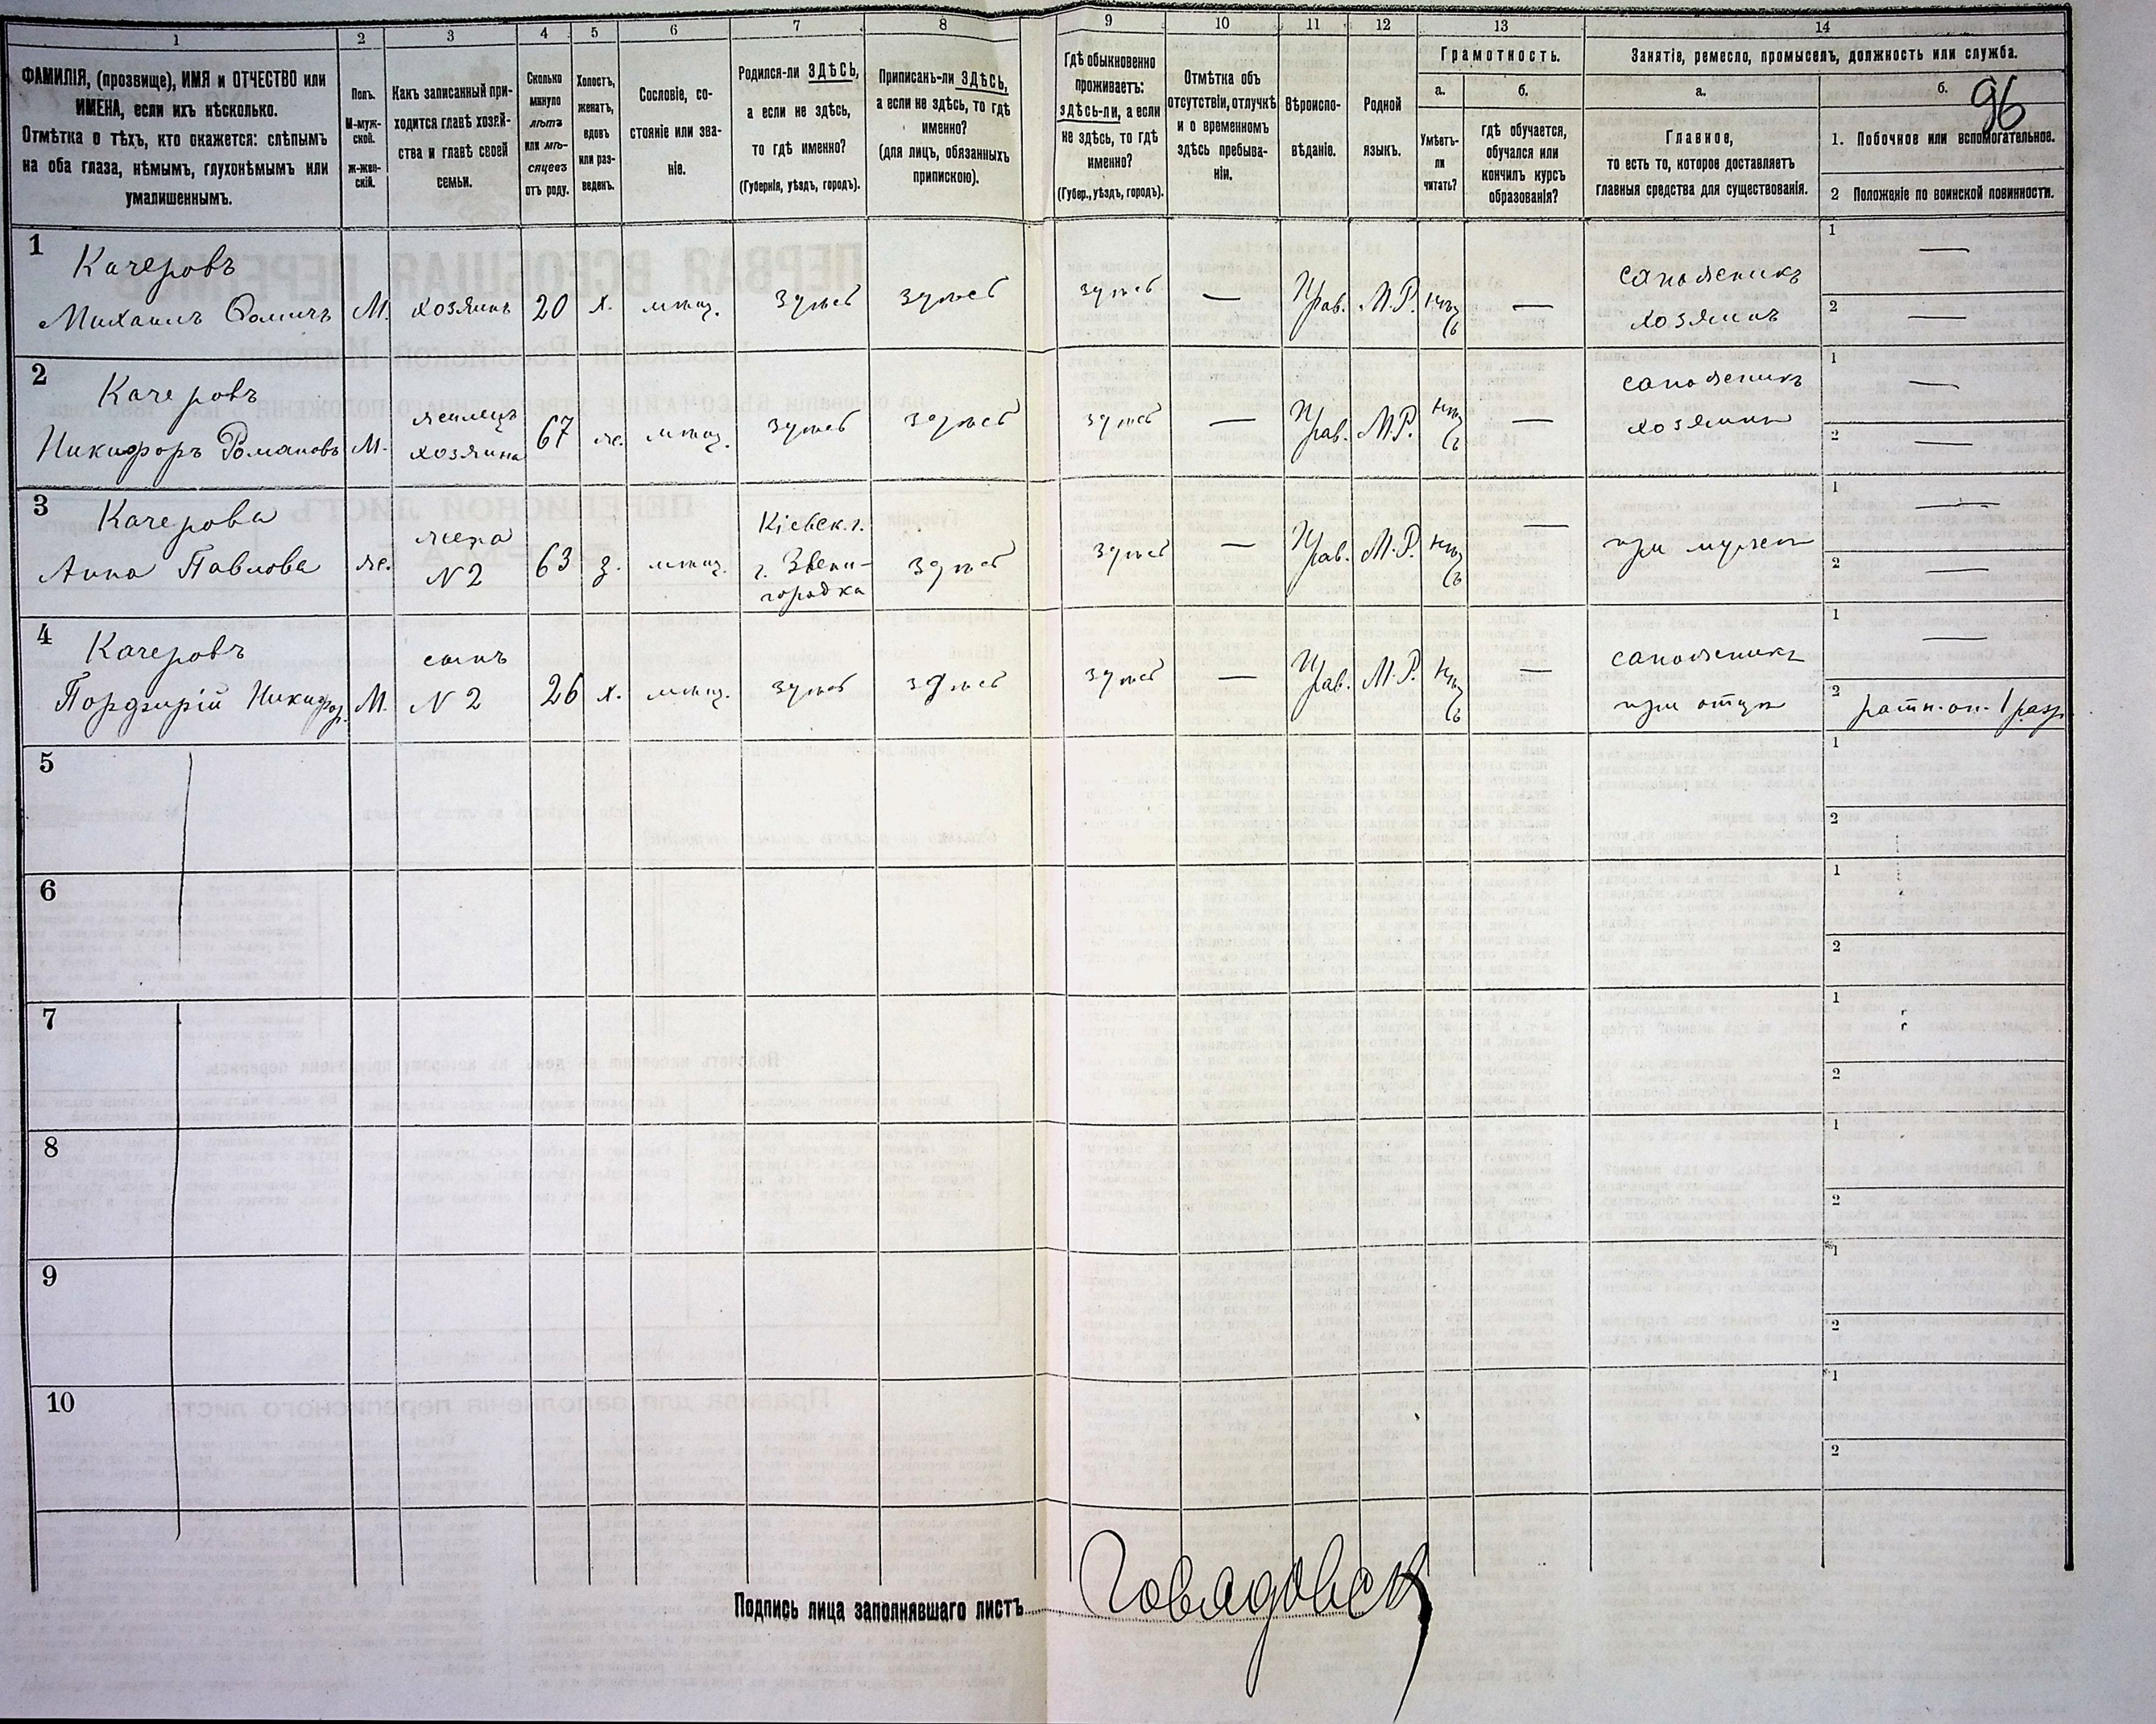 1 2 3 4 5 6 7 8 9 10 11 12 13 14
96
ФАМИЛІЯ, (прозвище), ИМЯ и ОТЧЕСТВО или
ИМЕНА, если ихъ нѣсколько.
Отмѣтка о тѣхъ, кто окажется: слѣпымъ
на оба глаза, нѣмымъ, глухонѣмымъ или
умалишеннымъ.
Полъ.
М-муж-
ской.
ж-жен-
скій.
Какъ записанный при-
ходится главѣ хозяй-
ства и главѣ своей
семьи.
Сколько
минуло
лѣтъ
или мѣ-
сяцевъ
отъ роду.
Холостъ,
женатъ,
вдовъ
или раз-
веденъ.
Сословіе, со-
стояніе или зва-
ніе.
Родился-ли ЗДѢСЬ,
а если не здѣсь,
то гдѣ именно?
(Губернія, уѣздъ, городъ).
Приписанъ-ли ЗДѢСЬ,
а если не здѣсь, то гдѣ
именно?
(для лицъ, обязанныхъ
припискою).
Гдѣ обыкновенно
проживаетъ:
ЗДѢСЬ-ЛИ, а если
не здѣсь, то гдѣ
именно?
(Губер., уѣздъ, городъ).
Отмѣтка объ
отсутствіи, отлучкѣ
и о временномъ
здѣсь пребыва-
ніи.
Вѣроиспо-
вѣданіе.
Родной
языкъ.
Грамотность.
а.
Умѣетъ-
ли
читать?
б.
гдѣ обучается,
обучался или
кончилъ курсъ
образованія?
Занятіе, ремесло, промыселъ, должность или служба.
а.
Главное,
то есть то, которое доставляетъ
главныя средства для существованія.
б.
1. Побочное или вспомогательное.
2 Положеніе по воинской повинности.
1
Качеровъ
Михаилъ Ѳомичъ М. хозяинъ 20 х. мѣщ. здѣсь здѣсь здѣсь — Прав. М.Р. нѣтъ —
сапожникъ
хозяинъ
1 —
2 —
2
Качеровъ
Никифоръ Романовъ М.
жилецъ
хозяина
67 же. мѣщ. здѣсь здѣсь здѣсь — Прав. М.Р. нѣтъ —
сапожникъ
хозяинъ
1 —
2 —
3
Качерова
Анна Павлова же.
жена
N 2
63 з. мѣщ.
Кіевск. г.
г. Звени-
городка
здѣсь здѣсь — Прав. М.Р. нѣтъ —
при мужѣ
1 —
2 —
4
Качеровъ
Порфирій Никифор. М.
сынъ
N 2
26 х. мѣщ. здѣсь здѣсь здѣсь — Прав. М.Р. —
сапожникъ
при отцѣ
1 —
2 ратн. оп. 1 разр
5 1
2
6 1
2
7 1
2
8 1
2
9 1
2
10 1
2
Подпись лица заполнявшаго листъ